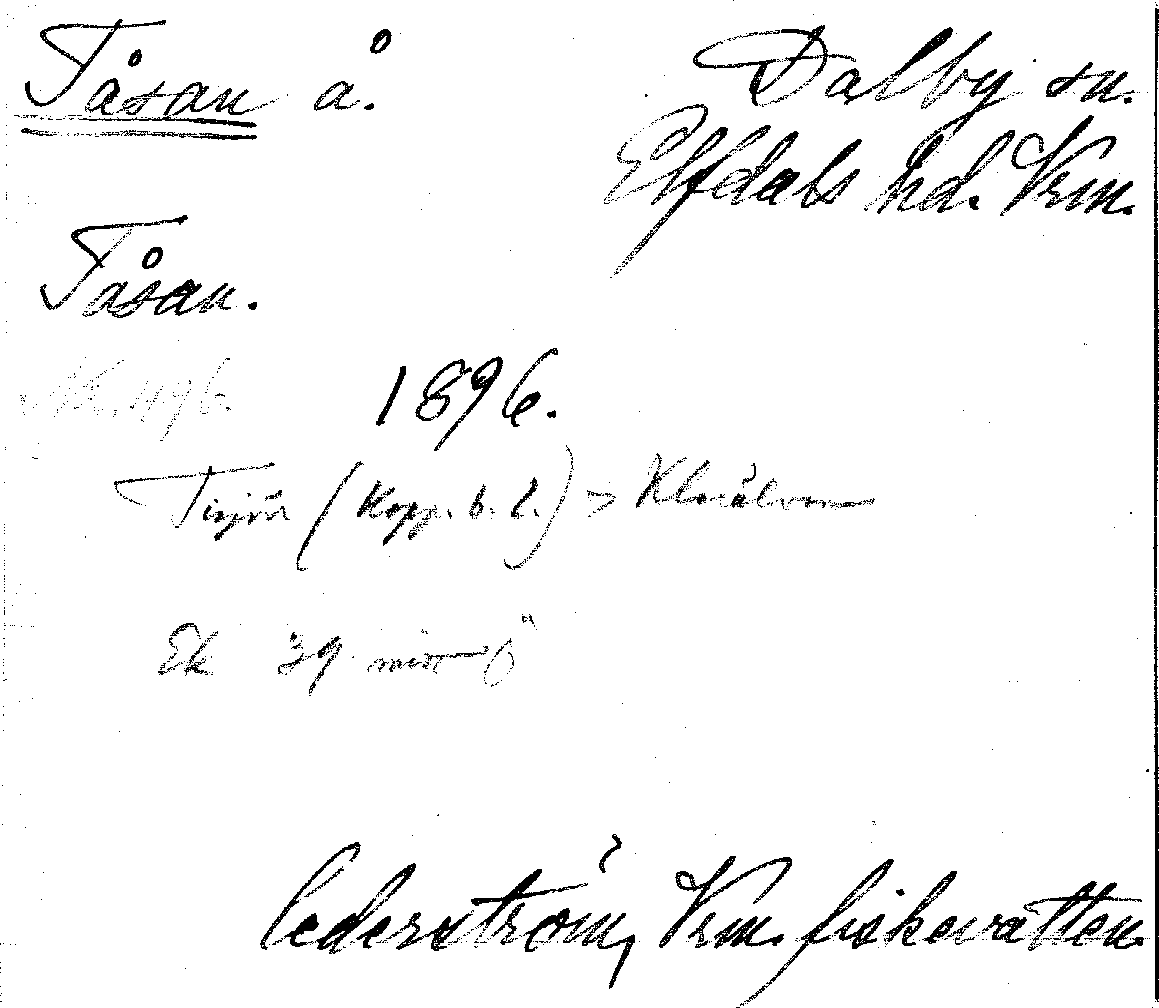 Tåsan å. Dalby sn.
Elfdals hd. Vrm.
Tåsan.
NK. 496. 1896.
(Kopp. b. l.) > Klarälven
Ek 39 mitt ö
Cederström, Vrm. fiskevatten.